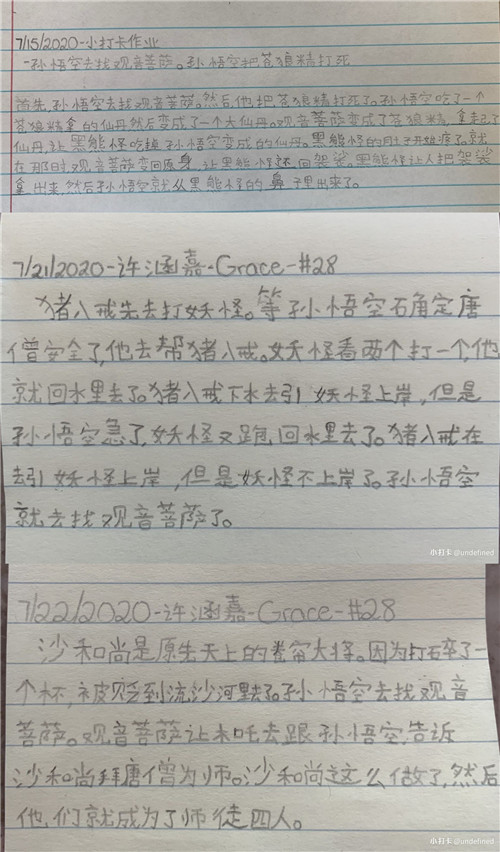 7/15/2020-小打卡作业
-孙悟空去找观音菩萨。孙悟空把苍狼精打死
首先,孙悟空去找观音菩萨。然后他把苍狼精打死了。孙悟空吃了一个
苍狼精拿的仙丹然后变成了一个大仙丹。观音菩萨变成了苍狼精,拿走了
仙丹,让黑熊怪吃掉孙悟空变成的仙丹。黑熊怪的肚子开始疼了。就
在那时观音菩萨变回原身,让黑熊怪还回袈裟。黑熊怪让人把袈裟
拿出来,然后孙悟空就从黑熊怪的鼻子里出来了。
7/21/2020-许涵嘉-Grace-#28
猪八戒先去打妖怪。等孙悟空石角定唐
僧安全了,他去帮猪八戒。妖怪看两个打一个,他
就回水里去了。猪八戒下水去引妖怪上岸,但是
孙悟空急了,妖怪又跑回水里去了。猪八戒在
去引妖怪上岸,但是妖怪不上岸了。孙悟空
就去找观音菩萨了。
小打卡@undefined
7/22/2020-许涵嘉-Grace-#28
沙和尚是原先天上的卷帘大将。因为打碎了一
个杯,被贬到流沙河里去了。孙悟空去找观音
菩萨。观音菩萨让木吒去跟孙悟空,告诉
沙和尚拜唐僧为师。沙和尚这么做了,然后
他们就成为了师徒四人。
小打卡@undefined